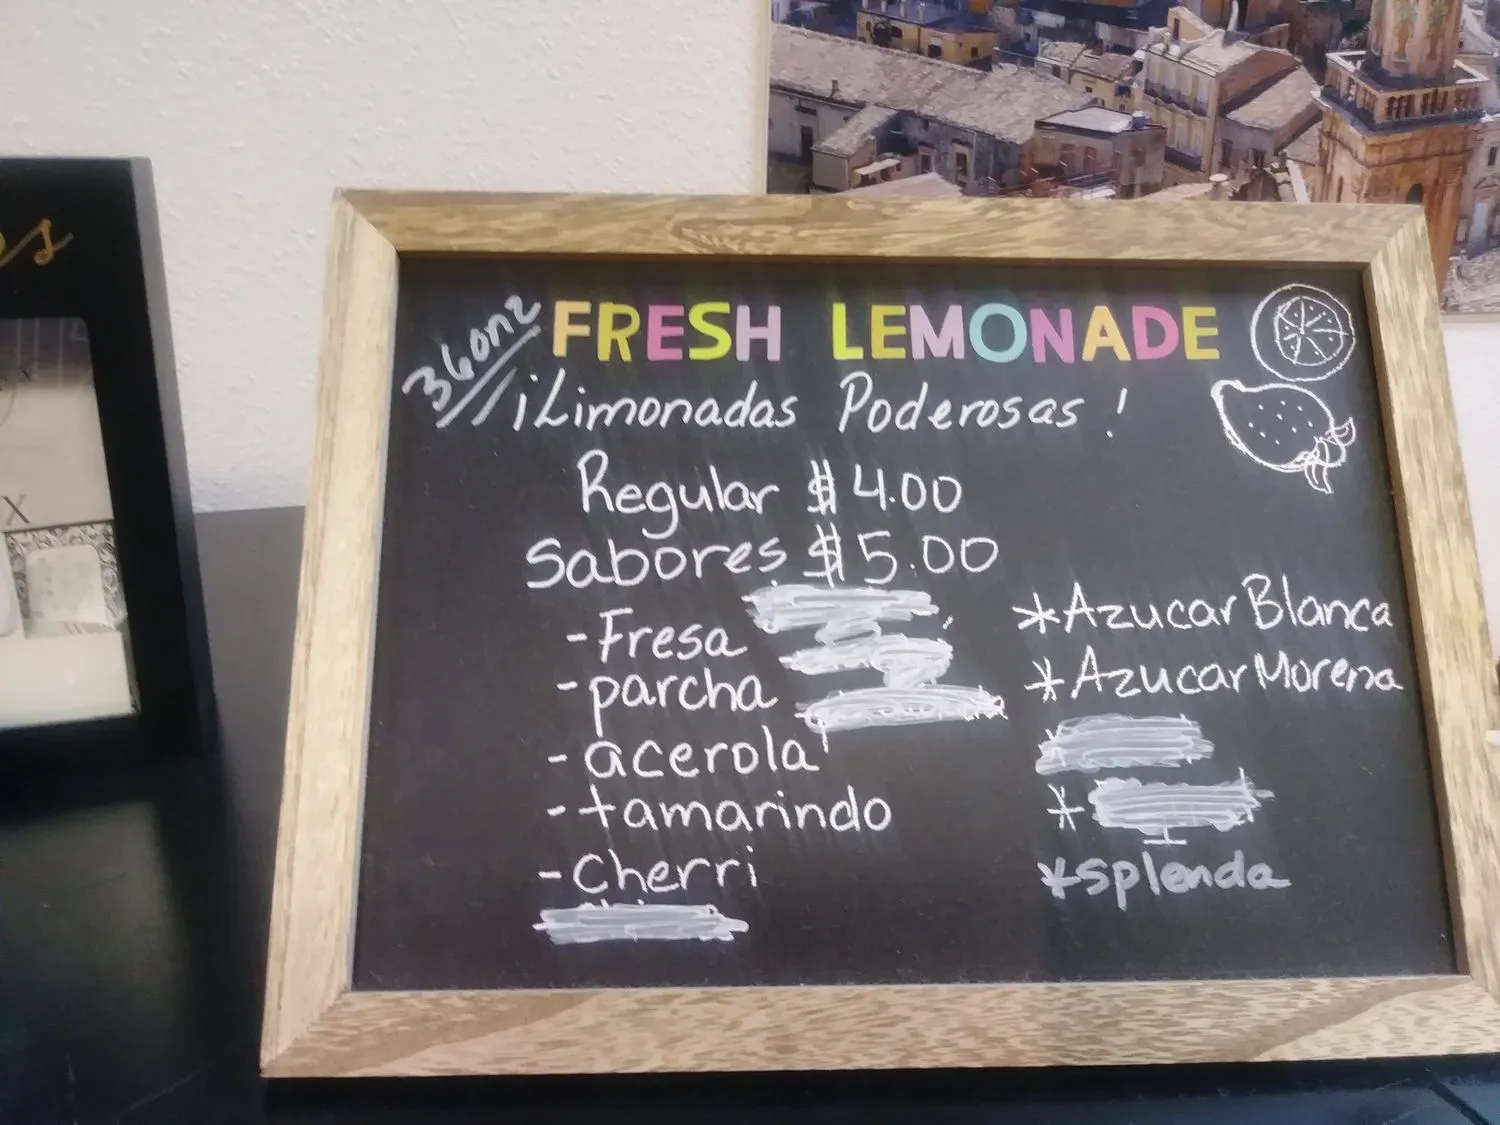 36onz
FRESH LEMONADE
¡Limonadas Poderosas!
Regular $4.00
Sabores $5.00
-Fresa
-parcha
-acerola
-tamarindo
-Cherri
*Azucar Blanca
*Azucar Morena
*
*
*splenda
X